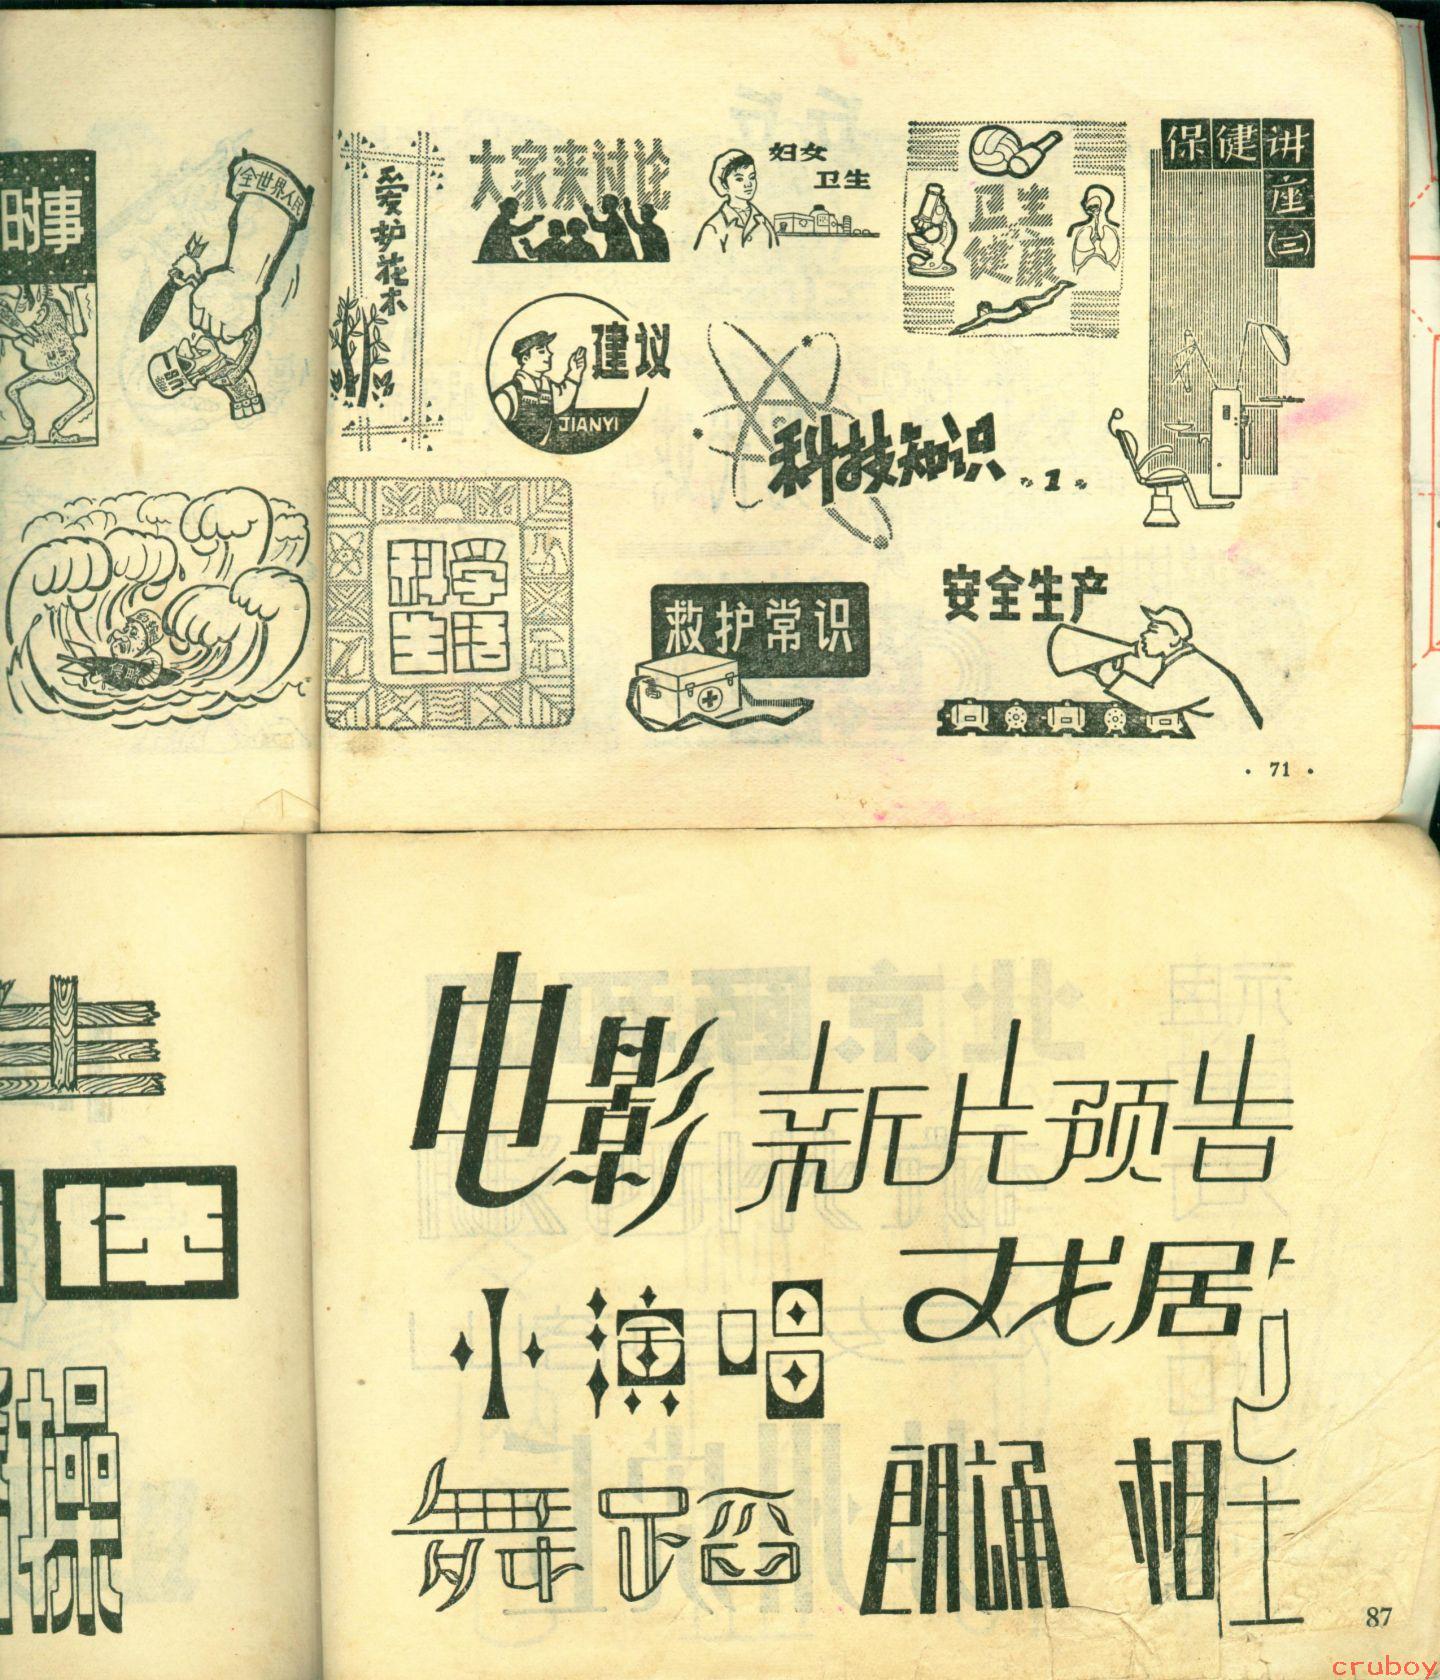 时事
全世界人民
爱护花木
大家来讨论
妇女
卫生
卫生
与
健康
保健讲
座
(三)
建议
JIANYI
科技知识
·1·
科学
生活
救护常识
安全生产
侵略
· 71 ·
电影
新片预告
戏剧
小演唱
舞蹈
朗诵
相
87
cruboy